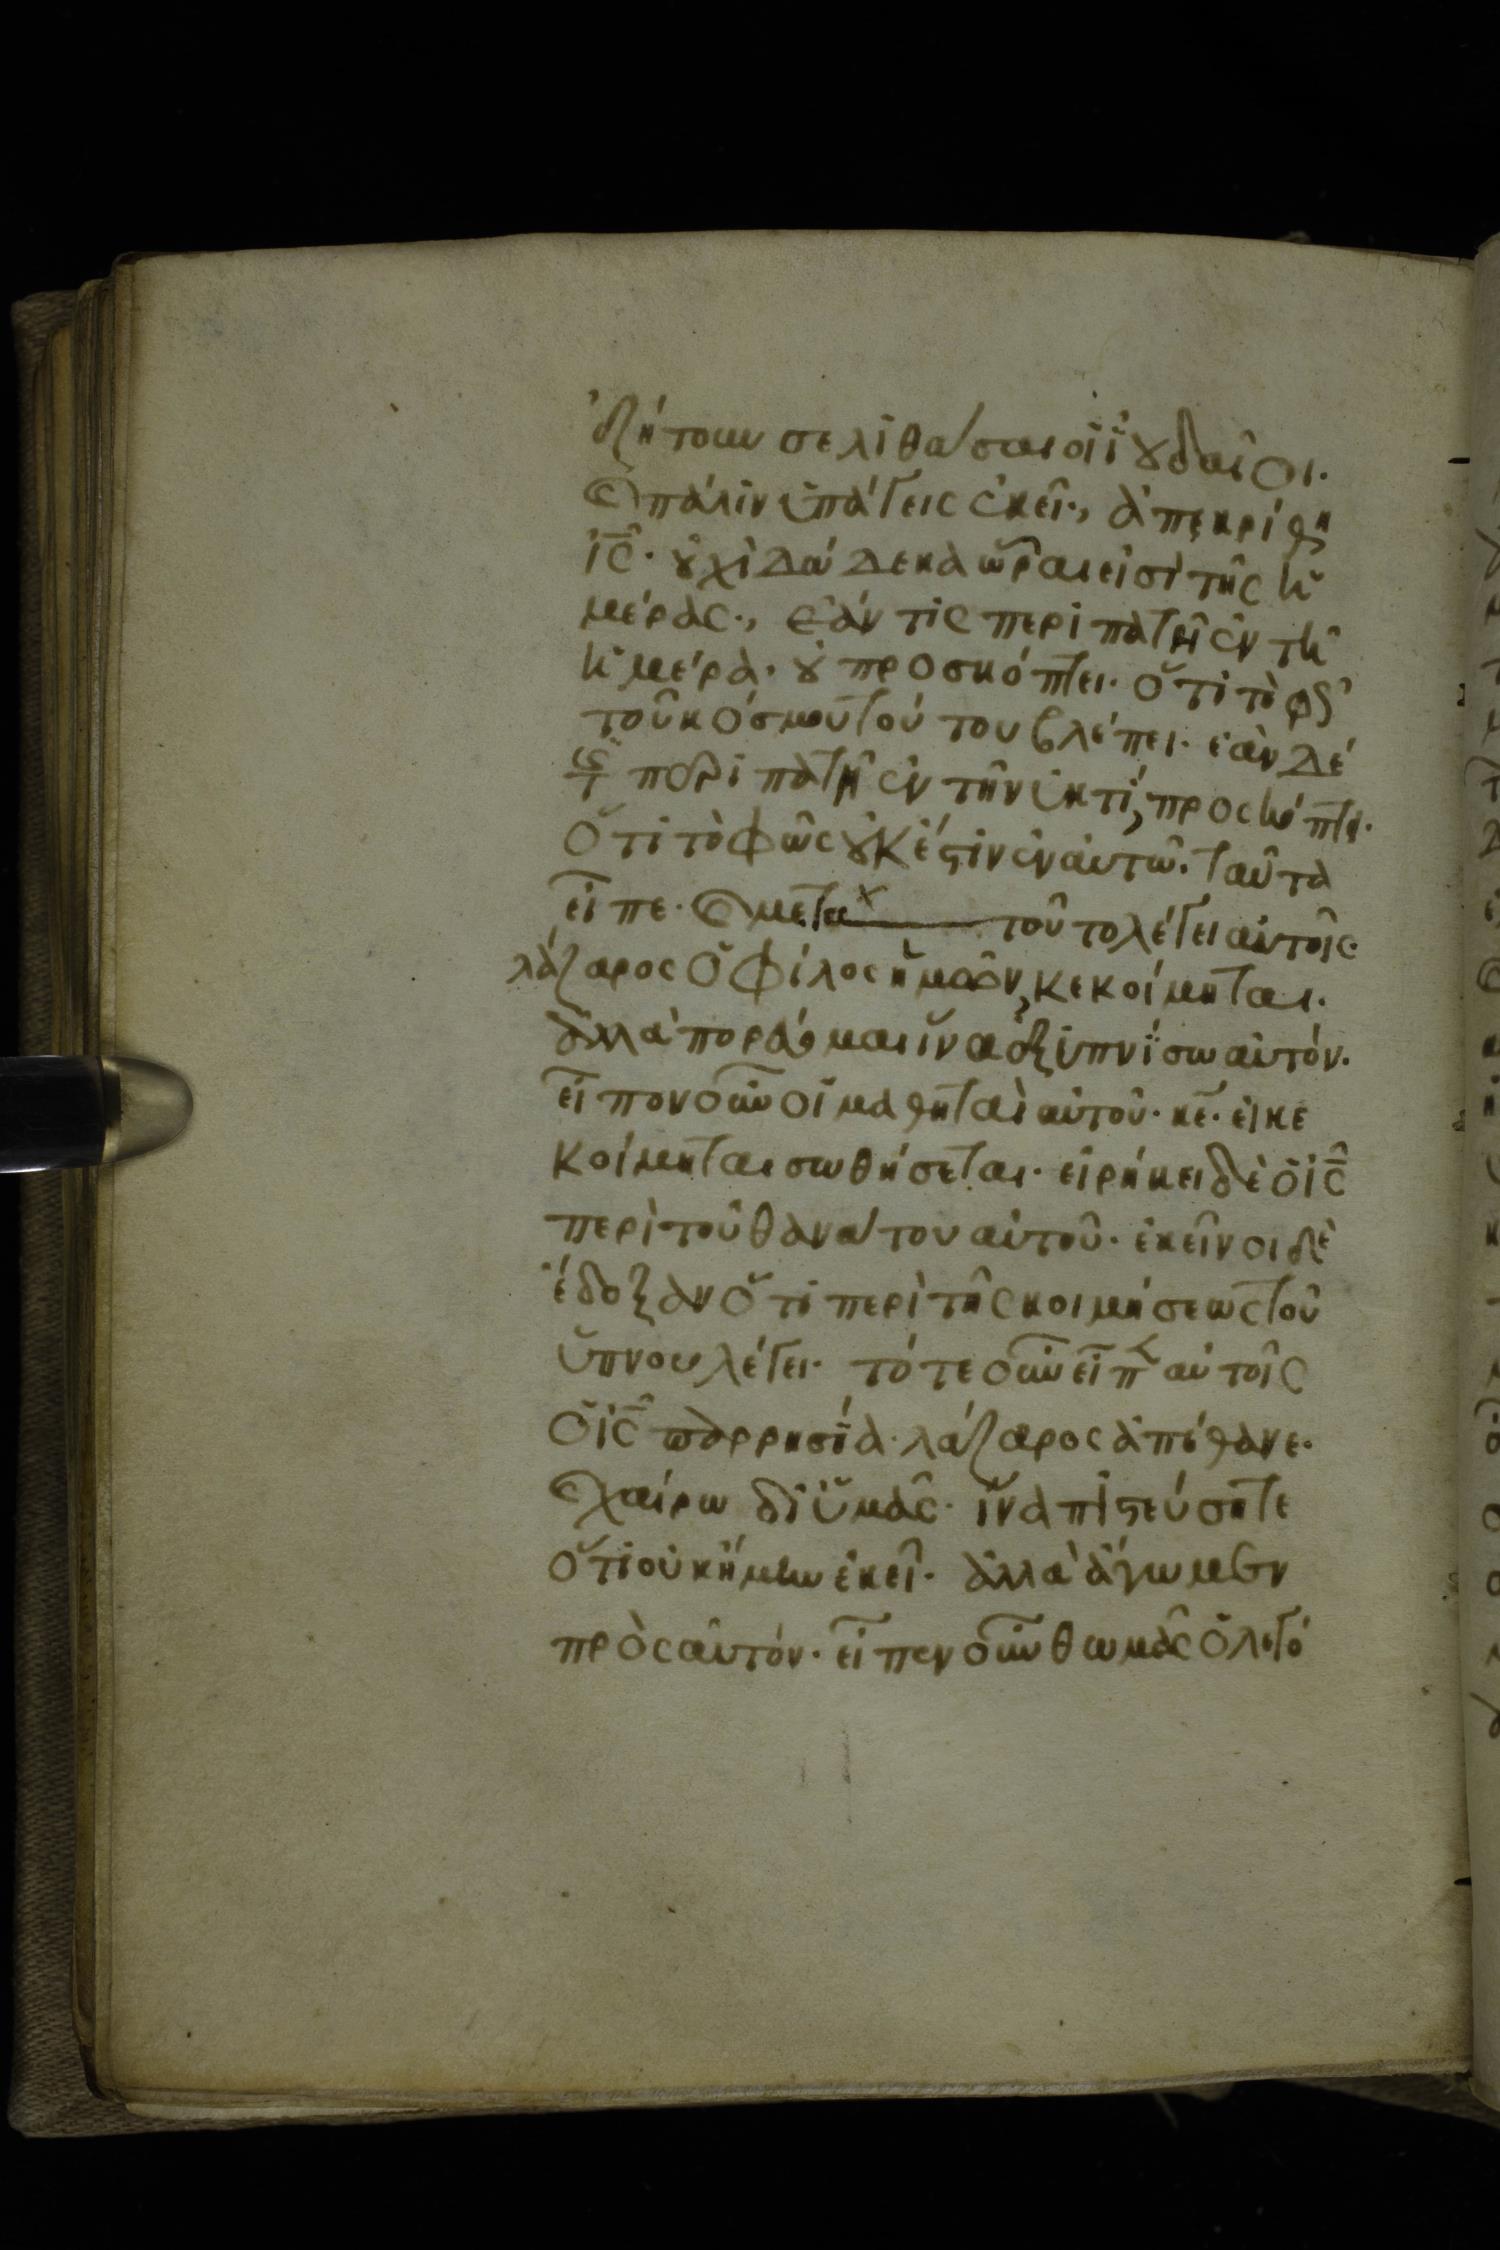 ἐζήτουν σε λιθάσαι οἱ ἰουδαῖοι·
καὶ πάλιν ὑπάγεις ἐκεῖ·, ἀπεκρίθη
ἰς̅· οὐχὶ δώδεκα ὧραι εἰσὶ τῆς ἡ
μέρας·, ἐάν τις περιπατῆ ἐν τῆ
ἡμέρα· οὐ προσκόπτει· ὅτι τὸ φῶς
τοῦ κόσμου τούτου βλέπει· ἐὰν δέ
τις περιπατῆ ἐν τῆ νυκτί, προσκόπτει·
ὅτι τὸ φῶς οὐκ ἔστιν ἐν αὐτῶ· ταῦτα
εἶπε· καὶ μετα τοῦτο λέγει αὐτοῖς·
λάζαρος ὁ φίλος ἡμῶν, κεκοίμηται·
ἀλλὰ πορεύομαι ἵνα ἐξυπνίσω αὐτόν·
εἶπον οὖν οἱ μαθηταὶ αὐτοῦ· κε̅· εἰ κε
κοίμηται σωθήσεται· εἰρήκει δὲ ὁ ἰς̅
περὶ τοῦ θανάτου αὐτοῦ· ἐκεῖνοι δὲ
ἔδοξαν ὅτι περὶ τῆς κοιμήσεως τοῦ
ὕπνου λέγει· τότε οὖν εἶπεν αὐτοῖς
ὁ ἰς̅ παρρησία· λάζαρος ἀπέθανε·
καὶ χαίρω δι ὑμᾶς· ἵνα πιστεύσητε
ὅτι οὐκ ἤμην ἐκεῖ· ἀλλὰ ἄγωμεν
πρὸς αὐτόν· εἶπεν οὖν θωμᾶς ὁ λεγό